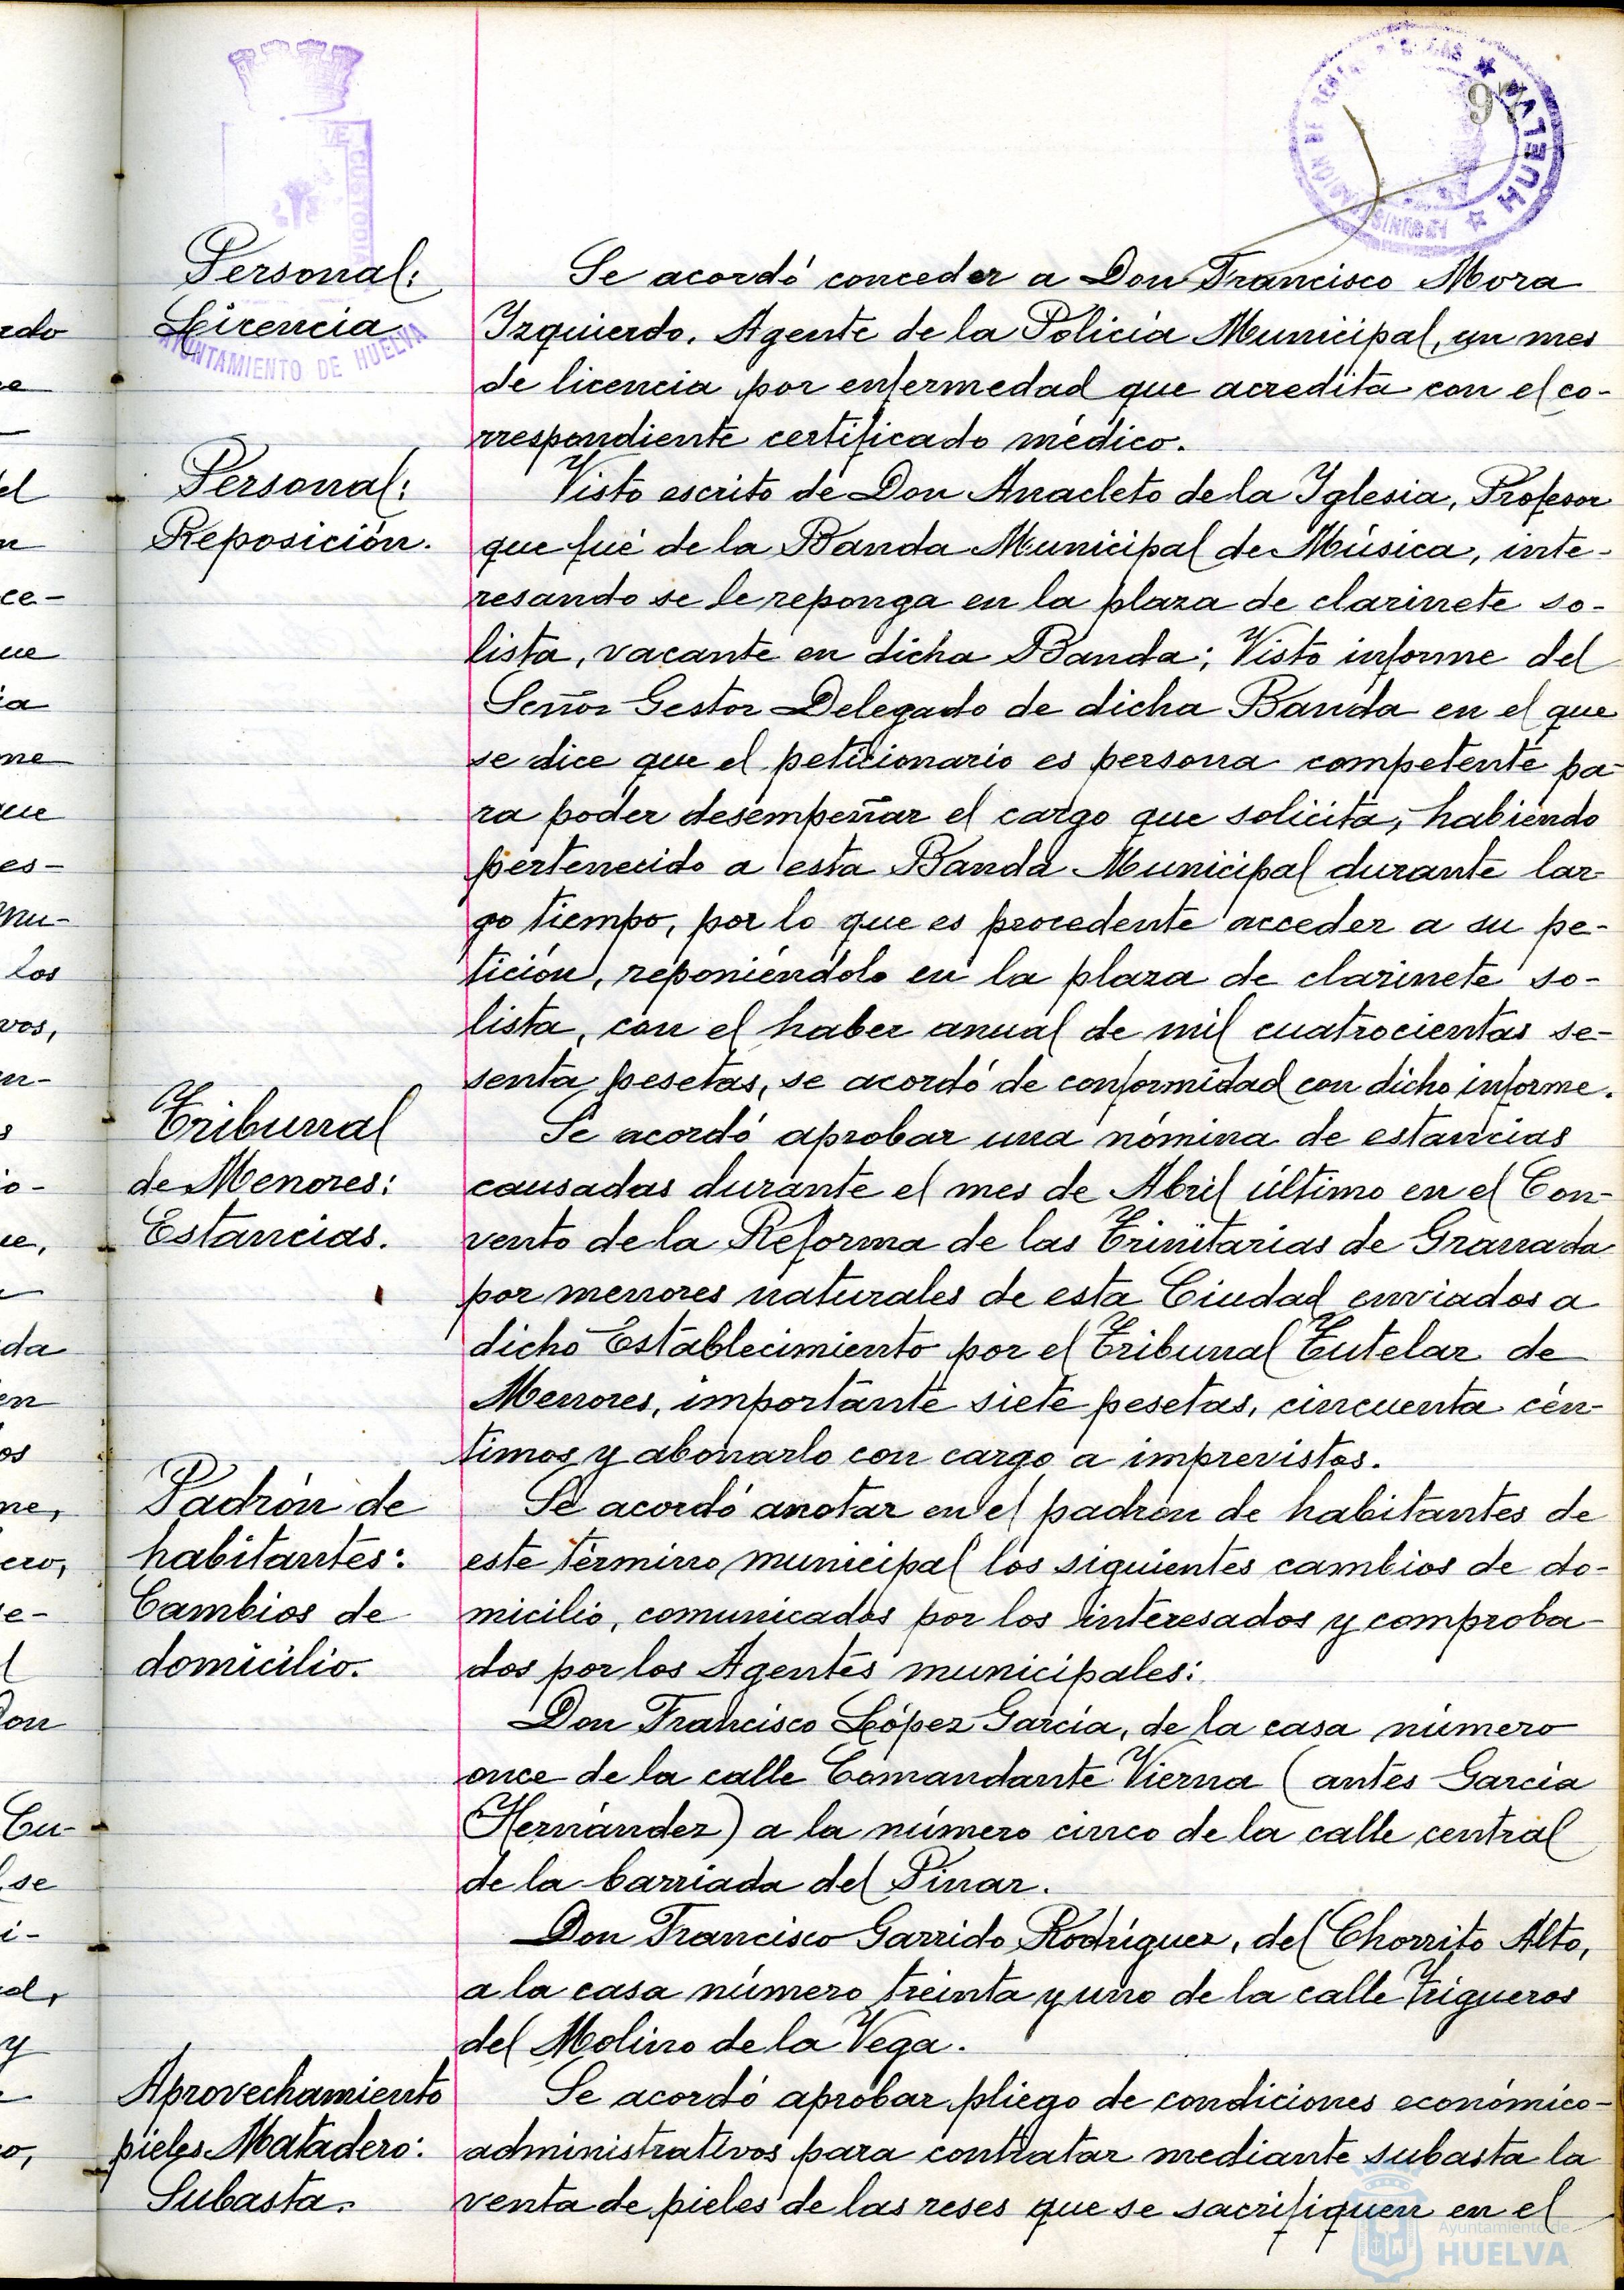 97
HUELVA
CUSTODIA
AYUNTAMIENTO DE HUELVA
Personal:
Licencia.
Se acordó conceder a Don Francisco Mora
Izquierdo, Agente de la Policía Municipal, un mes
de licencia por enfermedad que acredita con el co-
rrespondiente certificado médico.
Personal:
Reposición.
Visto escrito de Don Anacleto de la Iglesia, Profesor
que fué de la Banda Municipal de Música, inte-
resando se le reponga en la plaza de clarinete so-
lista, vacante en dicha Banda; Visto informe del
Señor Gestor Delegado de dicha Banda en el que
se dice que el peticionario es persona competente pa-
ra poder desempeñar el cargo que solicita, habiendo
pertenecido a esta Banda Municipal durante lar-
go tiempo, por lo que es procedente acceder a su pe-
tición, reponiéndolo en la plaza de clarinete so-
lista, con el haber anual de mil cuatrocientas se-
senta pesetas, se acordó de conformidad con dicho informe.
Tribunal
de Menores:
Estancias.
Se acordó aprobar una nómina de estancias
causadas durante el mes de Abril último en el Con-
vento de la Reforma de las Trinitarias de Granada
por menores naturales de esta Ciudad enviados a
dicho Establecimiento por el Tribunal Tutelar de
Menores, importante siete pesetas, cincuenta cén-
timos y abonarlo con cargo a imprevistos.
Padrón de
habitantes:
Cambios de
domicilio.
Se acordó anotar en el padrón de habitantes de
este término municipal los siguientes cambios de do-
micilio, comunicados por los interesados y comproba-
dos por los Agentes municipales:
Don Francisco López García, de la casa número
once de la calle Comandante Vierna (antes García
Hernández) a la número cinco de la calle central
de la barriada del Pinar.
Don Francisco Garrido Rodríguez, del Chorrito Alto,
a la casa número treinta y uno de la calle Trigueros
del Molino de la Vega.
Aprovechamiento
pieles Matadero:
Subasta.
Se acordó aprobar pliego de condiciones económico-
administrativos para contratar mediante subasta la
venta de pieles de las reses que se sacrifiquen en el
Ayuntamiento de
HUELVA